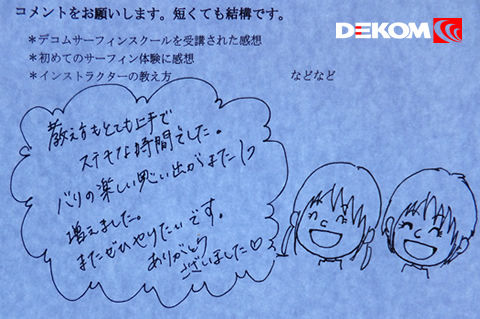 コメントをお願いします。短くても結構です。
DEKOM
*デコムサーフィンスクールを受講された感想
*初めてのサーフィン体験に感想
*インストラクターの教え方 などなど
教え方もとても上手で
ステキな時間でした。
バリの楽しい思い出がまた1つ
増えました。
またぜひやりたいです。
ありがとう
ございました♡